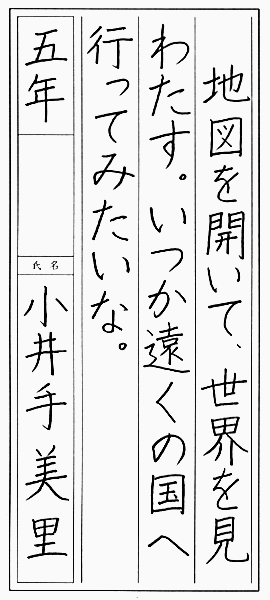 地図を開いて、世界を見
わたす。いつか遠くの国へ
行ってみたいな。
五年
氏名
小井手美里